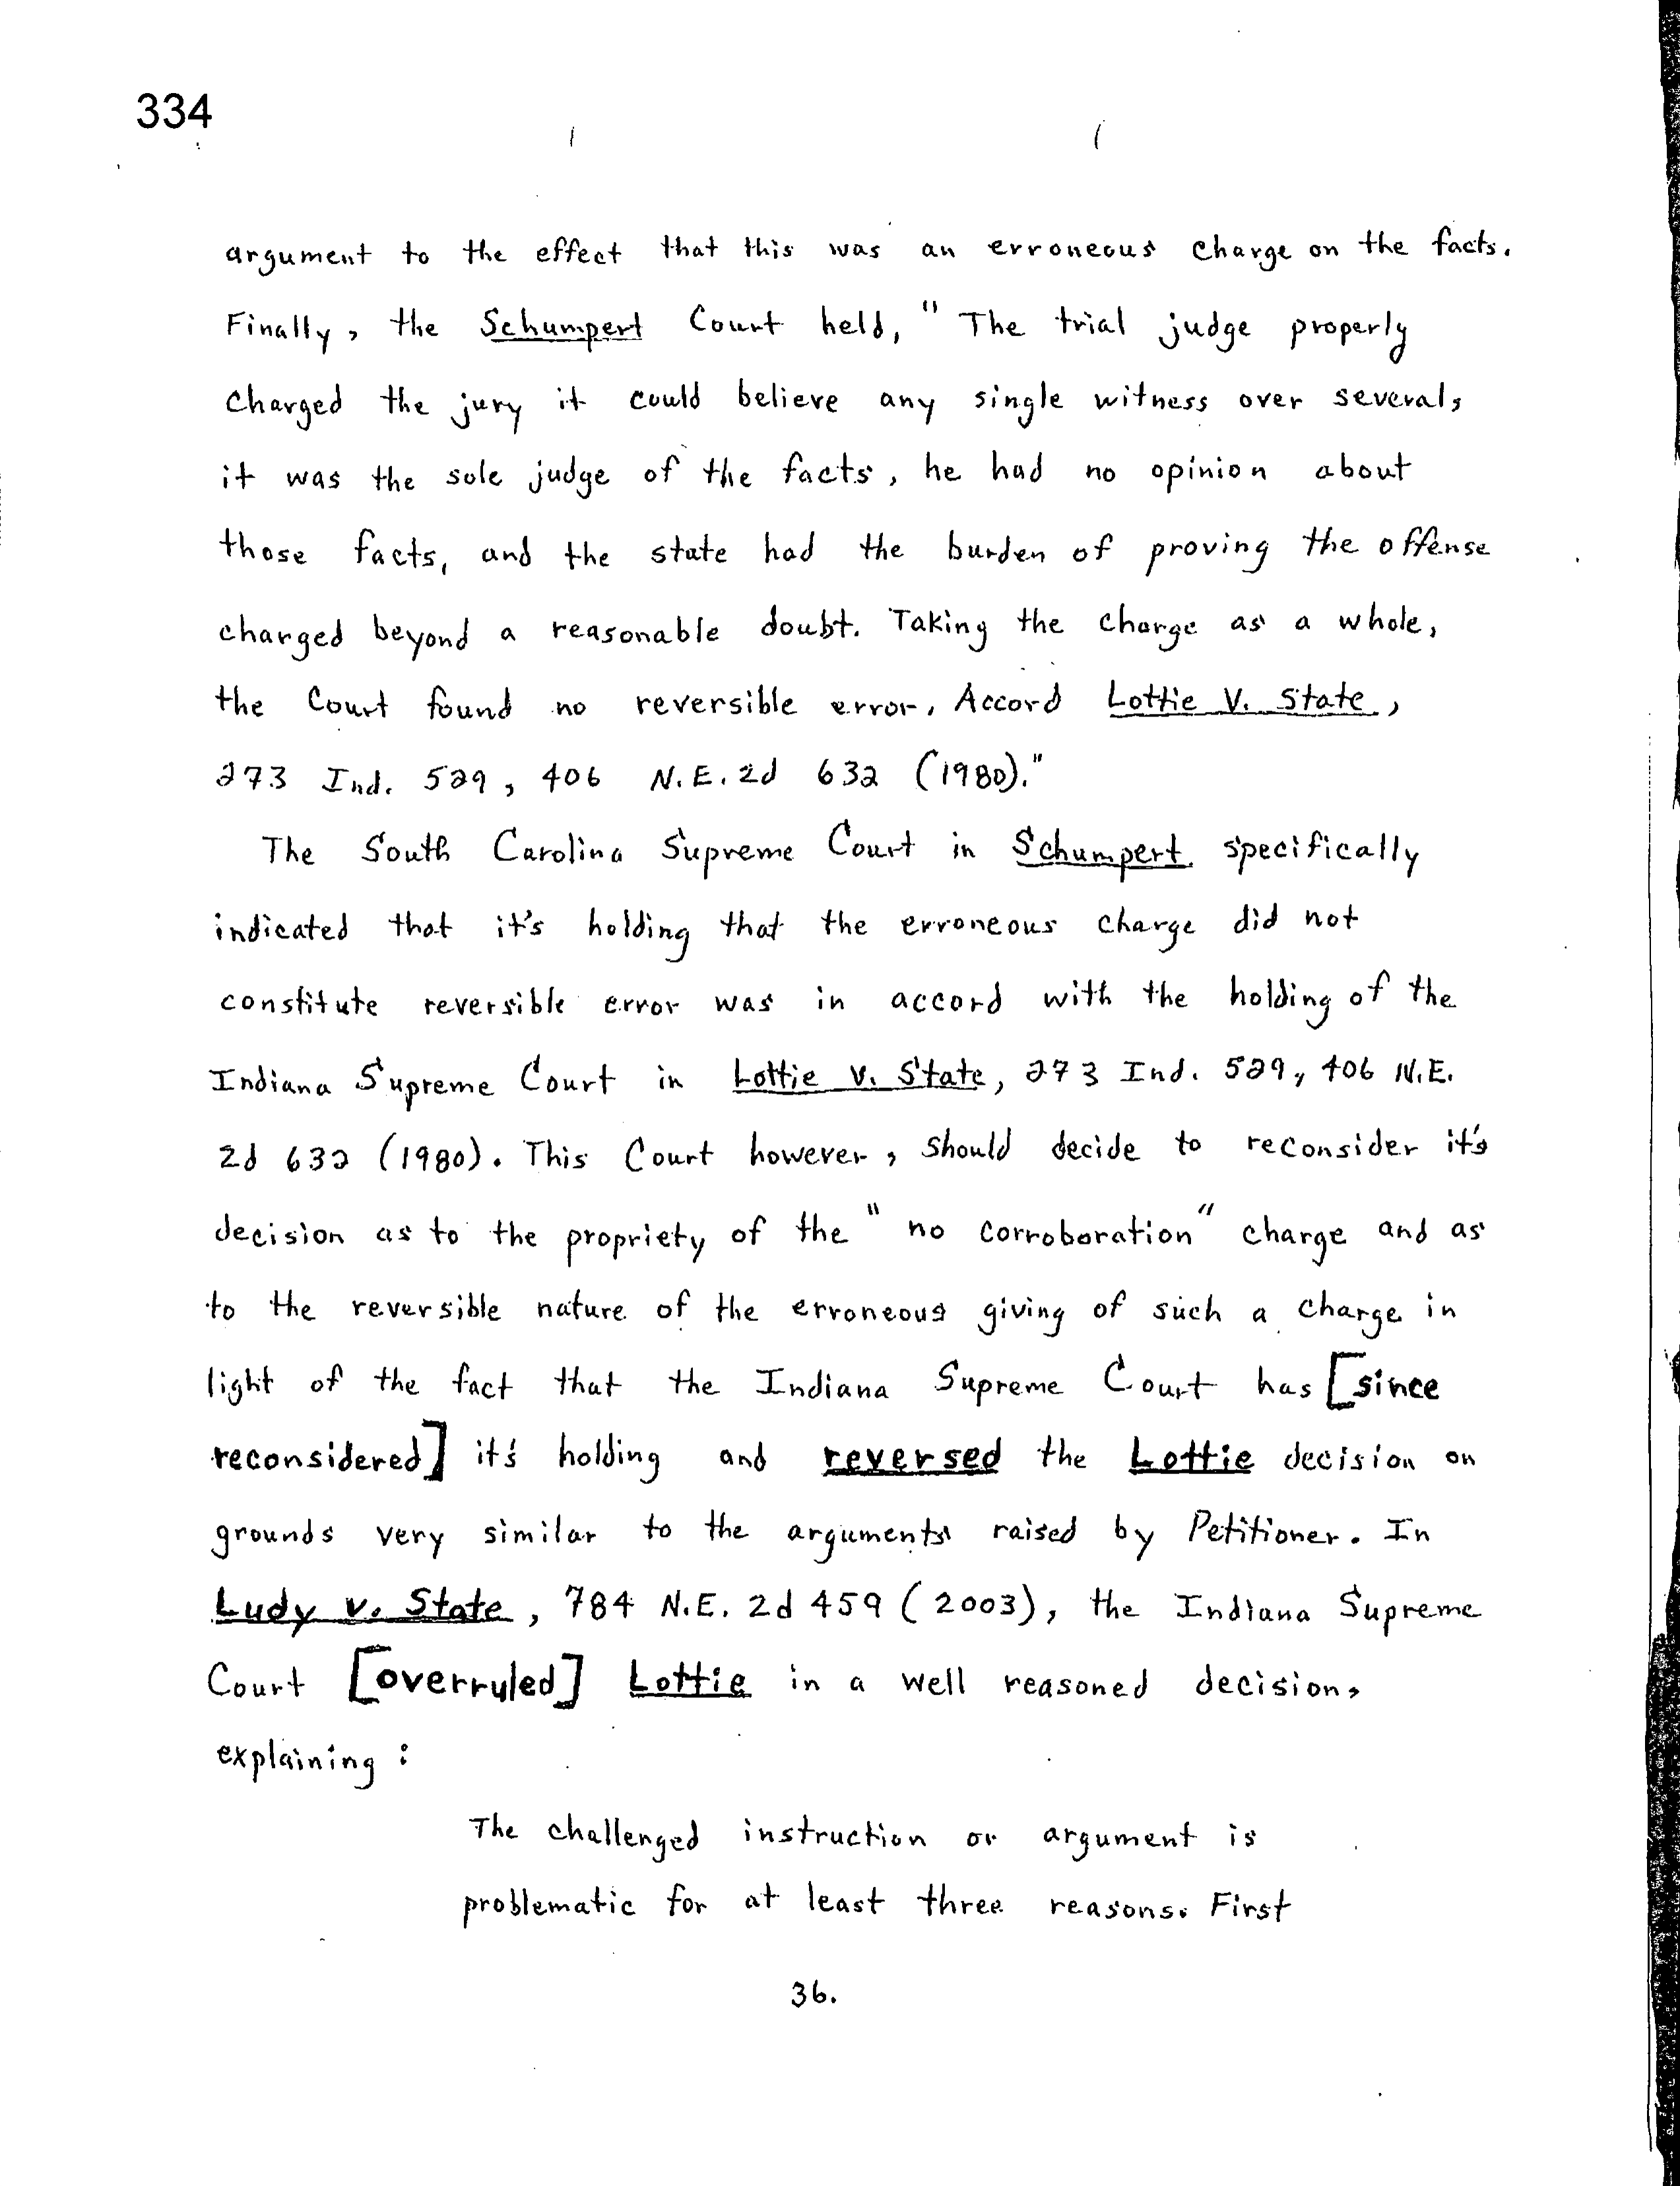 334
argument to the effect that this was an erroneous charge on the facts.
Finally, the Schumpert Court held, "The trial judge properly
charged the jury it could believe any single witness over several,
it was the sole judge of the facts, he had no opinion about
those facts, and the state had the burden of proving the offense
charged beyond a reasonable doubt. Taking the charge as a whole,
the Court found no reversible error. Accord Lottie V. State,
273 Ind. 529, 406 N.E.2d 632 (1980)."
The South Carolina Supreme Court in Schumpert specifically
indicated that it's holding that the erroneous charge did not
constitute reversible error was in accord with the holding of the
Indiana Supreme Court in Lottie V. State, 273 Ind. 529, 406 N.E.
2d 632 (1980). This Court however, should decide to reconsider it's
decision as to the propriety of the "no corroboration" charge and as
to the reversible nature of the erroneous giving of such a charge in
light of the fact that the Indiana Supreme Court has [since
reconsidered] it's holding and reversed the Lottie decision on
grounds very similar to the arguments raised by Petitioner. In
Ludy v. State, 784 N.E. 2d 459 (2003), the Indiana Supreme
Court [overruled] Lottie in a well reasoned decision,
explaining:
The challenged instruction or argument is
problematic for at least three reasons. First
36.